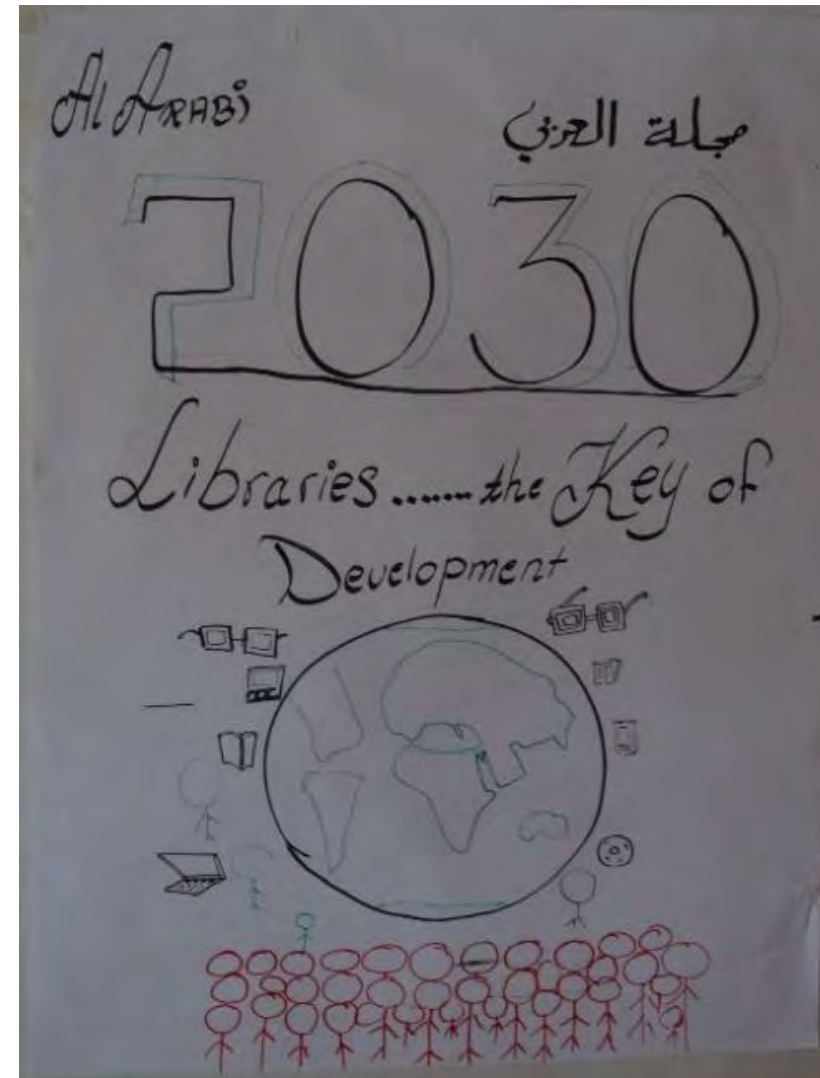 Al ARABi مجلة العربي
2030
Libraries ....... the Key of
Development